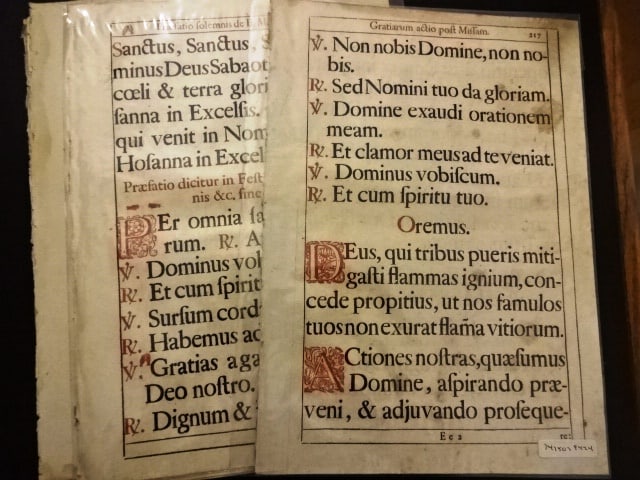 Præfatio solemnis de B. M
Sanctus, Sanctus, S
minus Deus Sabaot
cœli & terra glori
ſanna in Excelſis.
qui venit in Nom
Hoſanna in Excel
Præfatio dicitur in Feſt
nis &c. ſine
PEr omnia ſa
rum. ℟. A
℣. Dominus vob
℟. Et cum ſpirit
℣. Surſum cord
℟. Habemus ad
℣. Gratias aga
Deo noſtro.
℟. Dignum &
Gratiarum actio poſt Miſſam. 217
℣. Non nobis Domine, non no-
bis.
℟. Sed Nomini tuo da gloriam.
℣. Domine exaudi orationem
meam.
℟. Et clamor meus ad te veniat.
℣. Dominus vobiſcum.
℟. Et cum ſpiritu tuo.
Oremus.
DEus, qui tribus pueris miti-
gaſti flammas ignium, con-
cede propitius, ut nos famulos
tuos non exurat flãma vitiorum.
ACtiones noſtras, quæſumus
Domine, aſpirando præ-
veni, & adjuvando proſeque-
E e 2